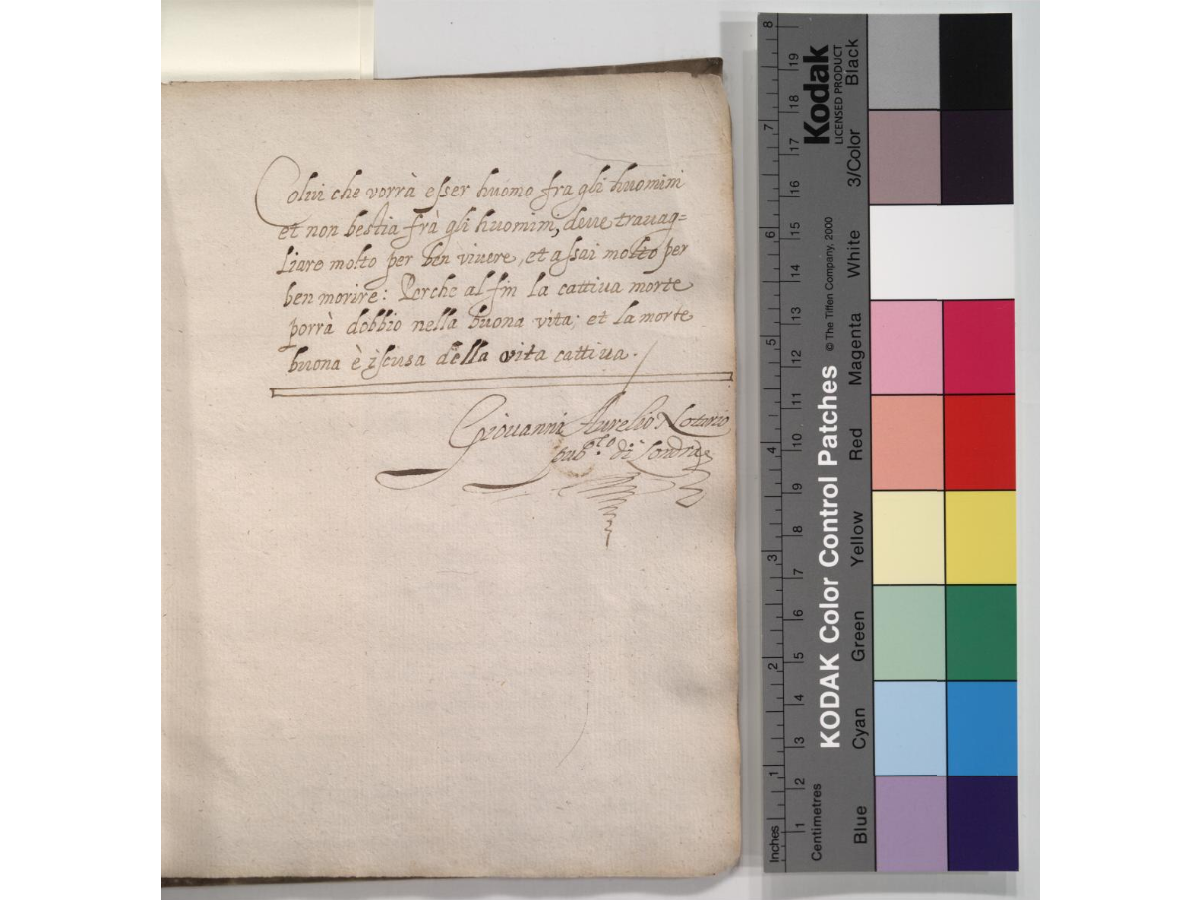 Colui che vorrà esser huomo fra gli huomini
et non bestia frà gli huomini, deue trauag=
liare molto per ben viuere, et assai molto per
ben morire: Perche al fin la cattiua morte
porrà dobbio nella buona vita; et la morte
buona è iscusa della vita cattiua.
Giouanni Aurelio Notario
pub.co di Londra
KODAK Color Control Patches © The Tiffen Company, 2000
Kodak
LICENSED PRODUCT
Black
3/Color
White
Magenta
Red
Yellow
Green
Cyan
Blue
Inches 1 2 3 4 5 6 7 8
Centimetres 1 2 3 4 5 6 7 8 9 10 11 12 13 14 15 16 17 18 19